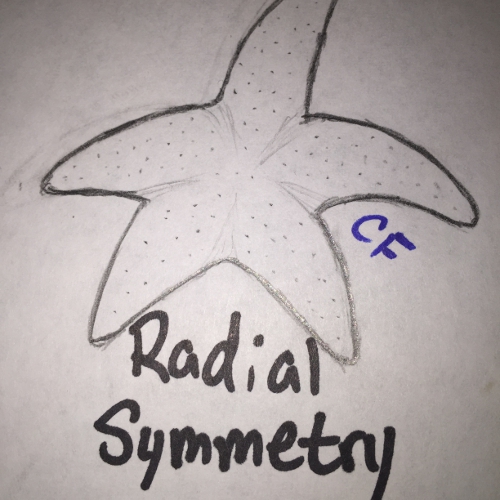 CF
Radial
Symmetry